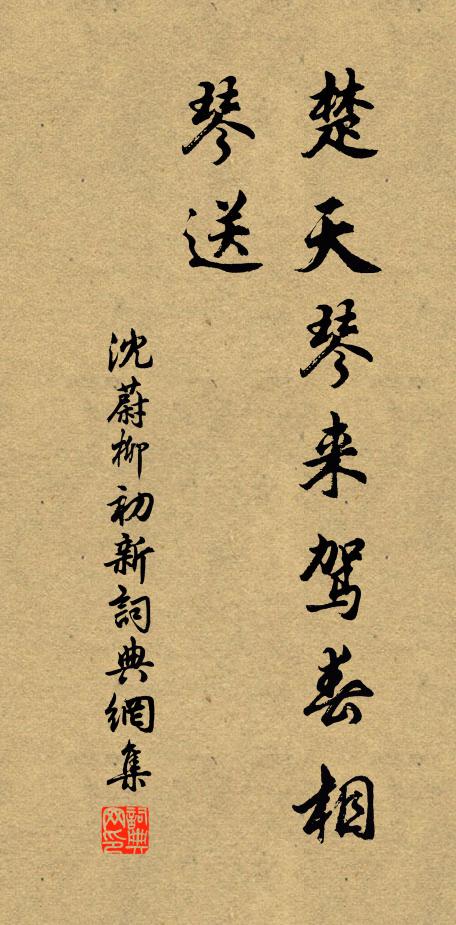 楚天琴来驾春相
琴送
沈蔚柳初新詞典網集
詞典网印